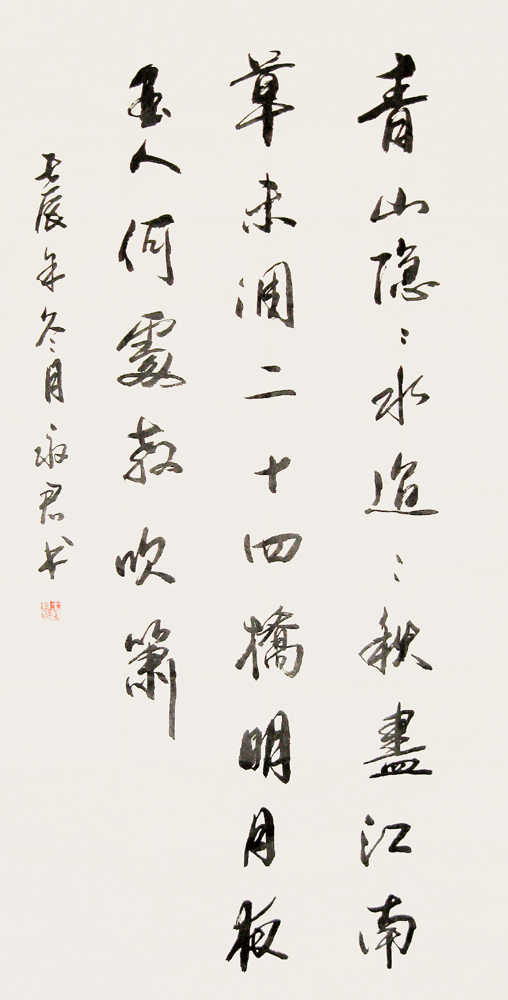 青山隐〻水迢〻秋盡江南
草未凋二十四橋明月夜
玉人何處教吹簫
壬辰年冬月 君书